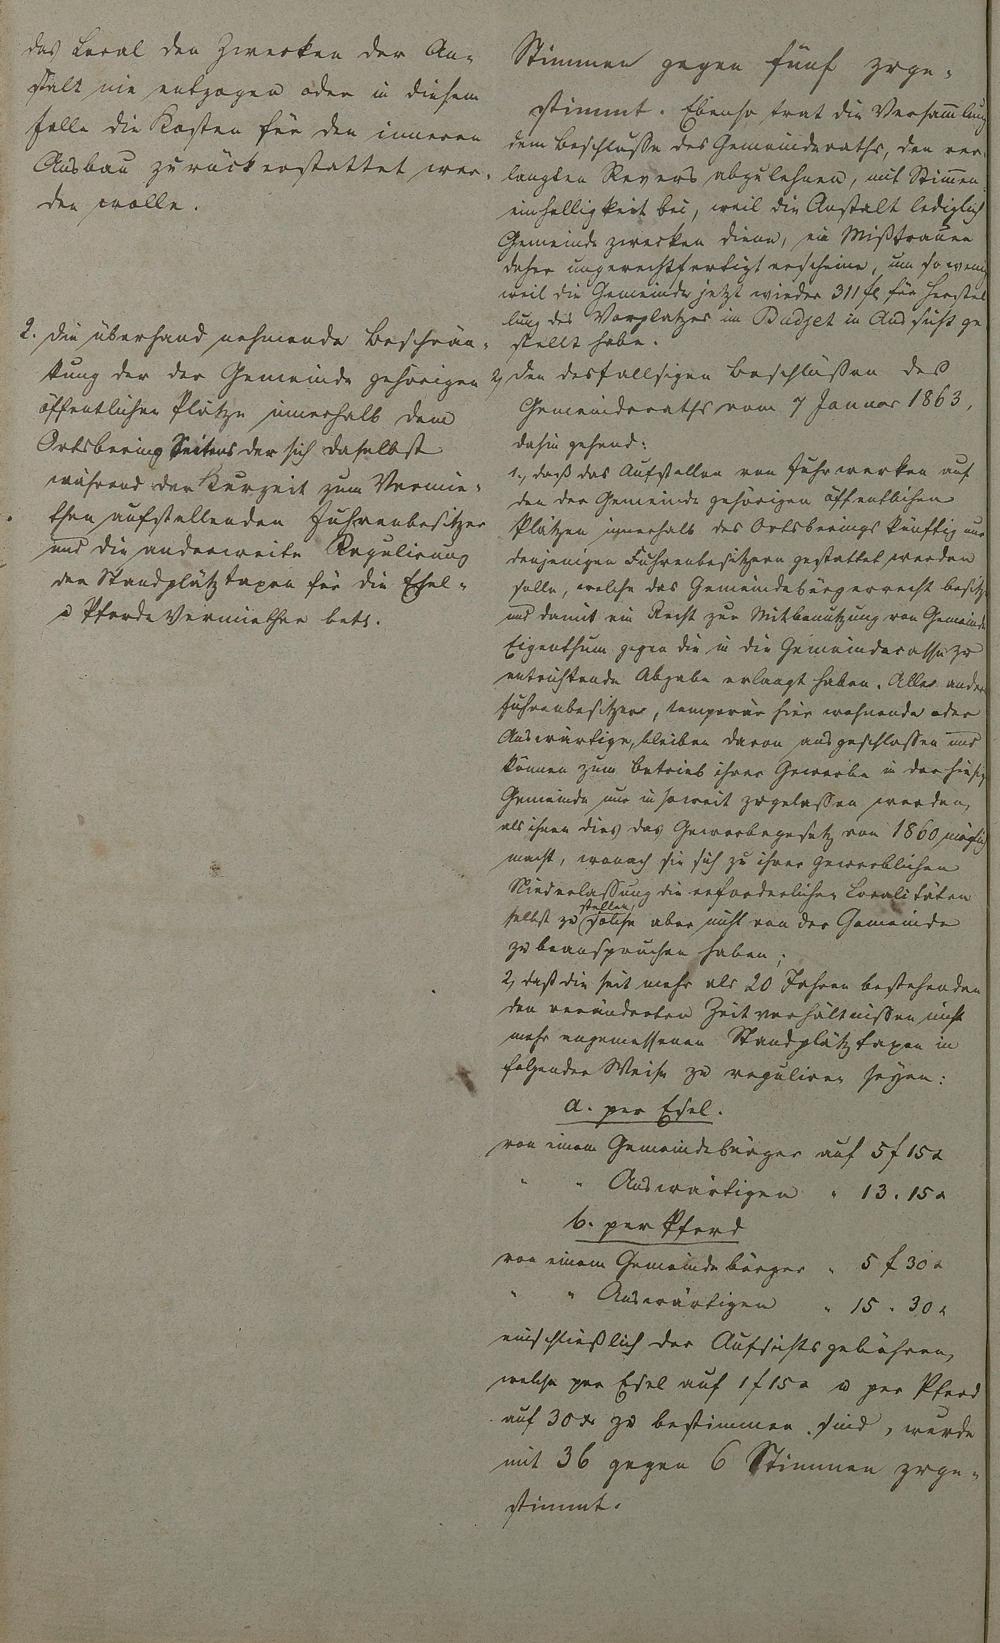 das Local den Zwecken der An-
stalt nie entzogen oder in diesem
Falle die Kosten für den inneren
Ausbau zurückerstattet wer-
den wolle.
2. Die überhand nehmende Beschrän-
kung der der Gemeinde gehörigen
öffentlichen Plätze innerhalb dem
Ortsbering Seitens der sich daselbst
während der Kurzeit zum Vermie-
then aufstellenden Fuhrenbesitzer
und die anderweite Regulirung
der Standplätztaxen für die Esel-
u Pferde Vermiether betr.
Stimmen gegen fünf zuge-
stimmt. Ebenso trat die Versam̄lung
dem Beschlusse des Gemeinderaths, den ver-
langten Revers abzulehnen, mit Stim̄en-
einhelligkeit bei, weil die Anstalt lediglich
Gemeinde zwecken diene, ein Mißtrauen
daher ungerechtfertigt erscheine, um so weni
weil die Gemeinde jetzt wieder 311 fl für Herstel
lung des Vorplatzes im Budjet in Aussicht ge
stellt habe.
2, Den desfallsigen Beschlüßen des
Gemeinderaths vom 7 Januar 1863,
dahin gehend:
1., daß das Aufstellen von Fuhrwerken auf
den der Gemeinde gehörigen öffentlichen
Plätzen innerhalb des Ortsberings künftig nur
denjenigen Fuhrenbesitzern gestattet werden
solle, welche das Gemeindebürgerrecht besitz
und damit ein Recht zur Mitbenutzung von Gemeinde
Eigenthum gegen die in die Gemeindecasse zu
entrichtende Abgabe erlangt haben. Alle ander
Fuhrenbesitzer, temporär hier wohnende oder
Auswärtige, bleiben davon ausgeschlossen und
können zum Betrieb ihrer Gewerbe in der hiesig
Gemeinde nur in soweit zugelassen werden,
als ihnen dies das Gewerbegesetz von 1860 möglich
macht, wonach sie sich zu ihrer gewerblichen
Niederlassung die erforderlichen Localitäten
selbst zu stellen, solche aber nicht von der Gemeinde
zu beanspruchen haben;
2, daß die seit mehr als 20 Jahren bestehenden
den veränderten Zeitverhältnissen nicht
mehr angemessenen Standplätztaxen in
folgender Weise zu reguliren seyen:
a. per Esel.
von einem Gemeindebürger auf 5 f 15 x
" " Auswärtigen " 13. 15 x
b. per Pferd
von einem Gemeindebürger " 5 f 30 x
" " Auswärtigen " 15. 30 x
einschließlich der Aufsichtsgebühren,
welche per Esel auf 1 f 15 x u per Pferd
auf 30 x zu bestimmen sind, wurde
mit 36 gegen 6 Stimmen zuge-
stimmt.